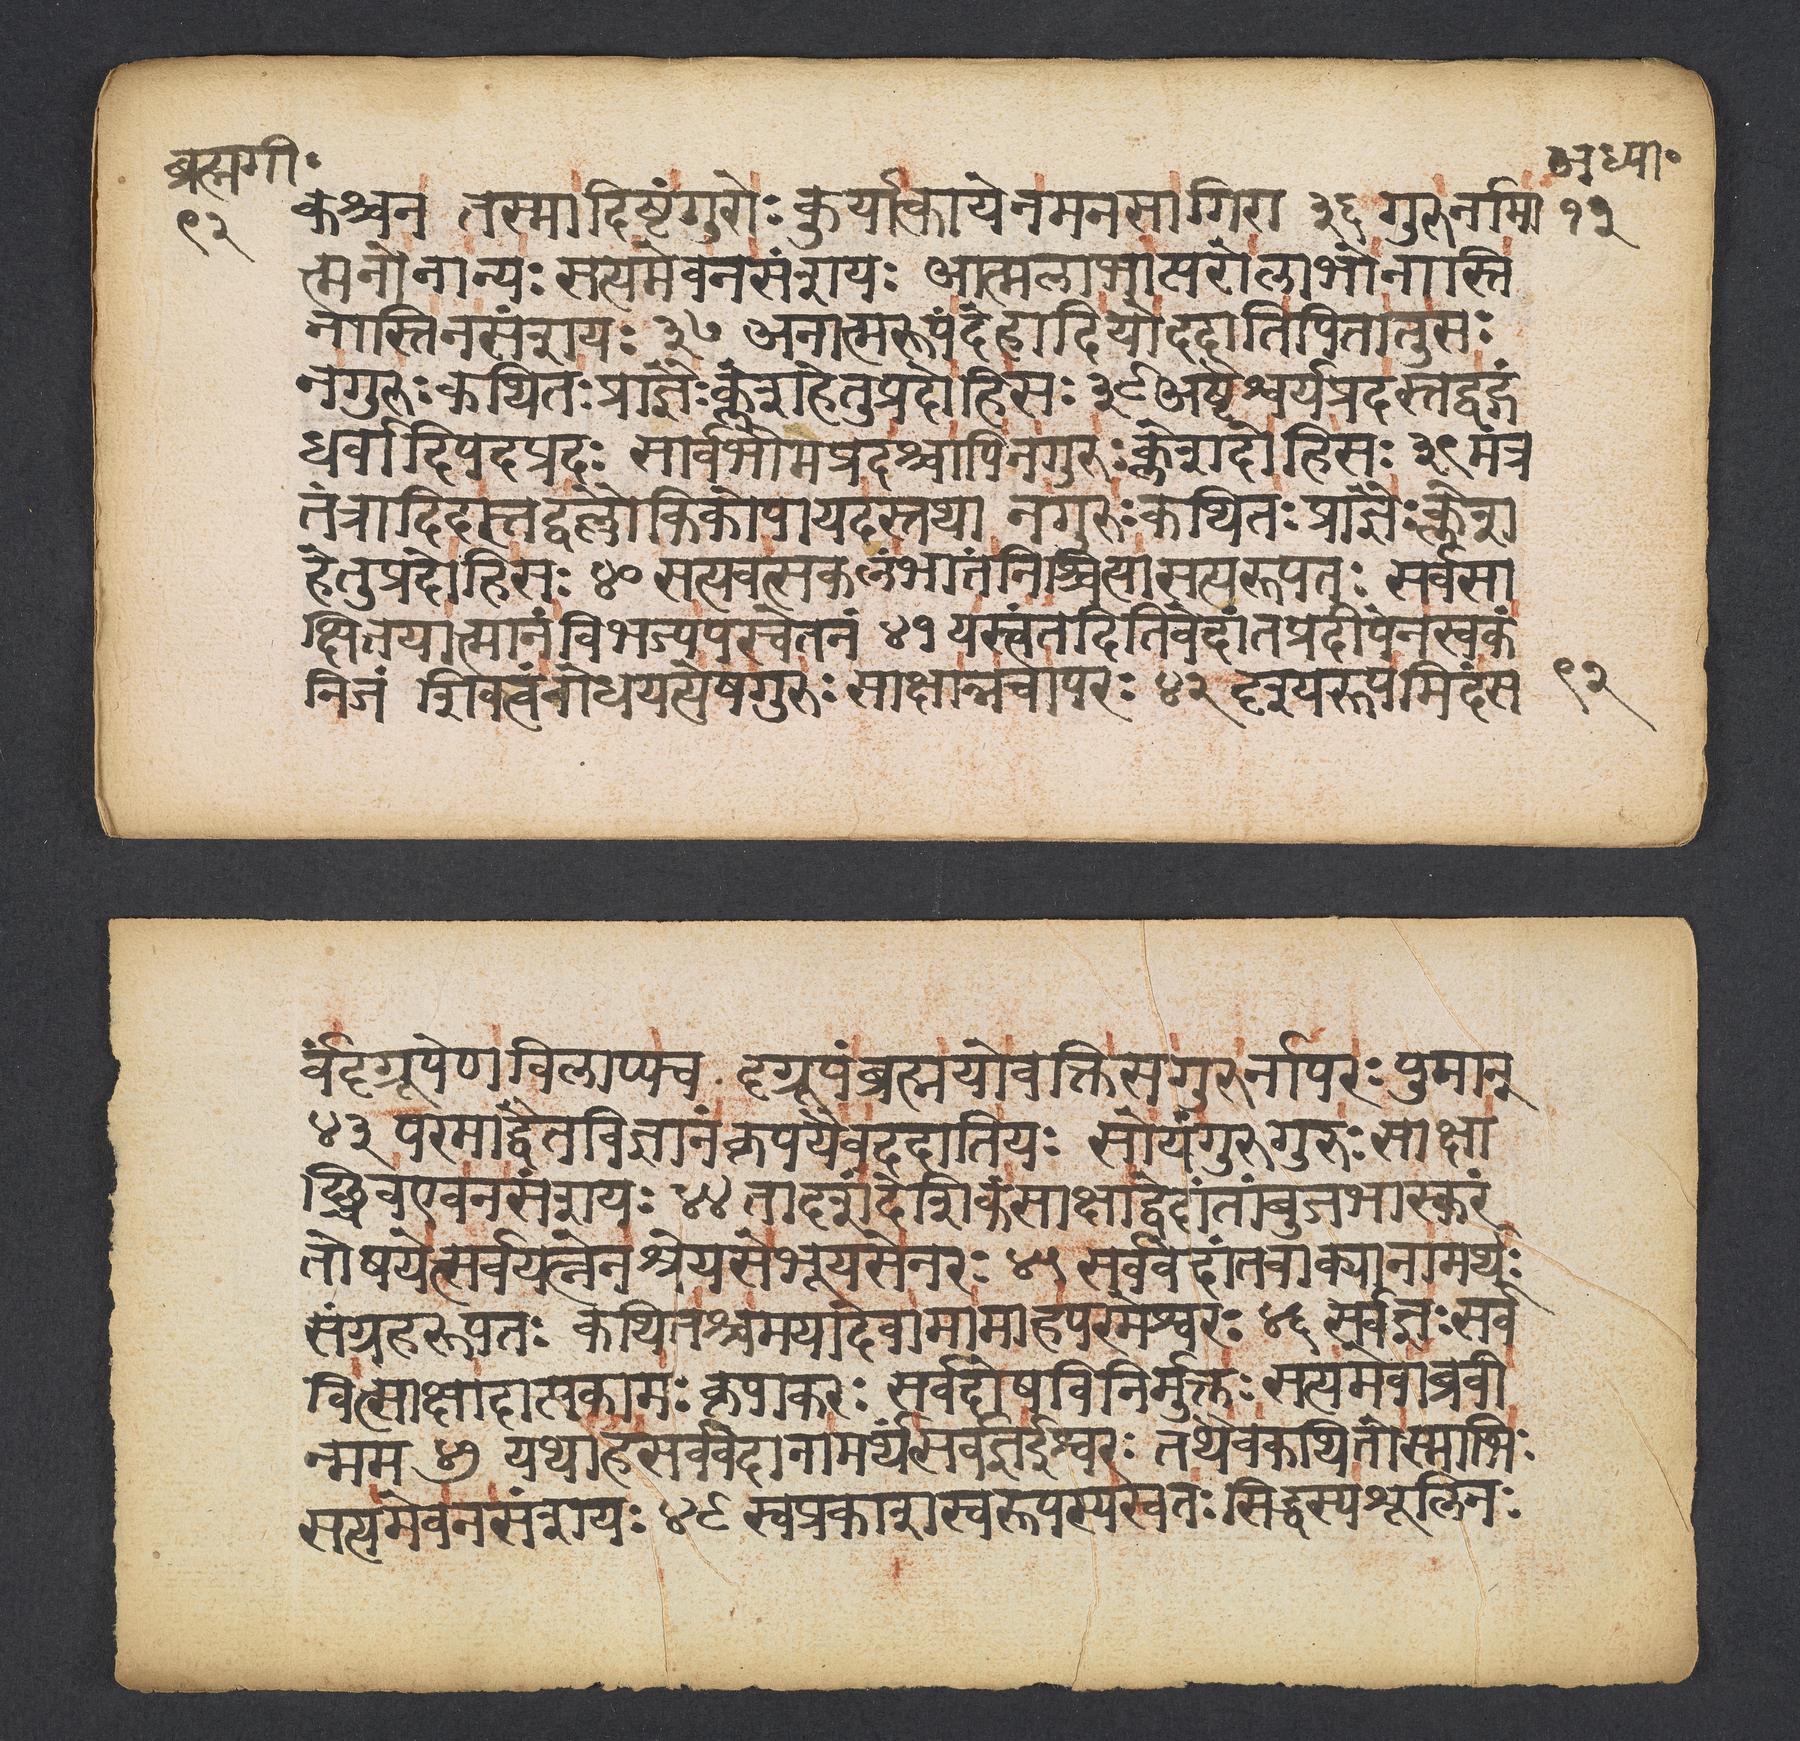 ब्रह्मगी॰
९२
अध्या॰
१२
कश्चन तस्मादिष्टंगुरोः कुर्यात्कायेनमनसागिरा ३६ गुरुर्नामा
त्मनोनान्यः सत्यमेवनसंशयः आत्मलाभात्परोलाभोनास्ति
नास्तिनसंशयः ३७ अनात्मरूपंदेहादियोददातिपितातुसः
नगुरुः कथितः प्राज्ञैः क्लेशहेतुप्रदोहिसः ३८ अष्टैश्वर्यप्रदस्तद्वद्गं
धर्वादिपदप्रदः सार्वभौमप्रदश्चापिनगुरुः क्लेशदोहिसः ३९ मंत्र
तंत्रादिदस्तद्वल्लौकिकोपायदस्तथा नगुरुः कथितः प्राज्ञैः क्लेश
हेतुप्रदोहिसः ४० सत्यवत्सकलंभातंनिश्चित्यासत्यरूपतः सर्वसा
क्षितयात्मानंविभज्यपरचेतनं ४१ यस्त्वंतदितिवेदांतप्रदीपेनस्वकं
निजं शिवत्वंबोधयत्येषगुरुः साक्षान्नचापरः ४२ दृश्यरूपमिदंस
९२
र्वंदृग्रूपेणविलाप्यच दृग्रूपंब्रह्मयोवक्तिसगुरुर्नापरः पुमान्
४३ परमाद्वैतविज्ञानंकृपयैवददातियः सोयंगुरुगुरुः साक्षा
च्छिवएवनसंशयः ४४ तादृशंदेशिकंसाक्षाद्वेदांतांबुजभास्करं
तोषयेत्सर्वयत्नेनश्रेयसेभूयसेनरः ४५ सर्ववेदांतवाक्यानामर्थः
संग्रहरूपतः कथितश्चमयादेवामामाहपरमेश्वरः ४६ सर्वज्ञः सर्व
वित्साक्षादाप्तकामः कृपाकरः सर्वदोषविनिर्मुक्तः सत्यमेवाब्रवी
न्मम ४७ यथाहसर्ववेदानामर्थंसर्वज्ञईश्वरः तथैवकथितोस्माभिः
सत्यमेवनसंशयः ४८ स्वप्रकाशस्वरूपस्यस्वतः सिद्धस्यशूलिनः